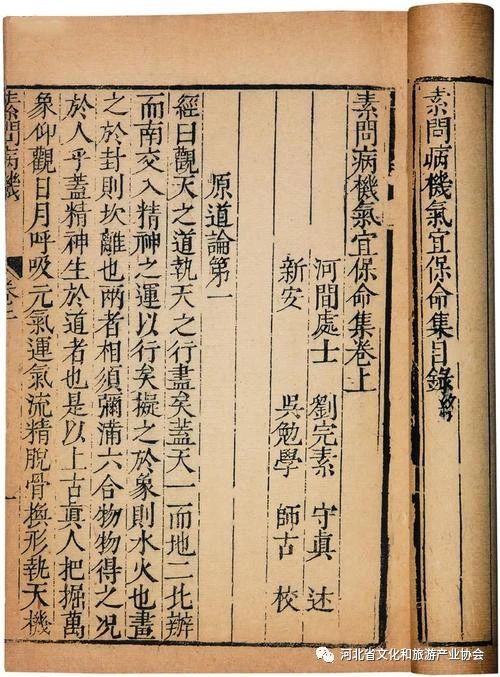 素問病機氣宜保命集目錄終
素問病機氣宜保命集卷上
河間處士 劉完素 守真 述
新安 吳勉學 師古 校
原道論第一
經曰觀天之道執天之行盡矣蓋天一而地二北辨
而南交入精神之運以行矣擬之於象則水火也畫
之於封則坎離也兩者相須彌滿六合物物得之况
於人乎蓋精神生於道者也是以上古真人把握萬
象仰觀日月呼吸元氣運氣流精脫骨換形執天機
素問病機 卷上 一
河北省文化和旅游产业协会